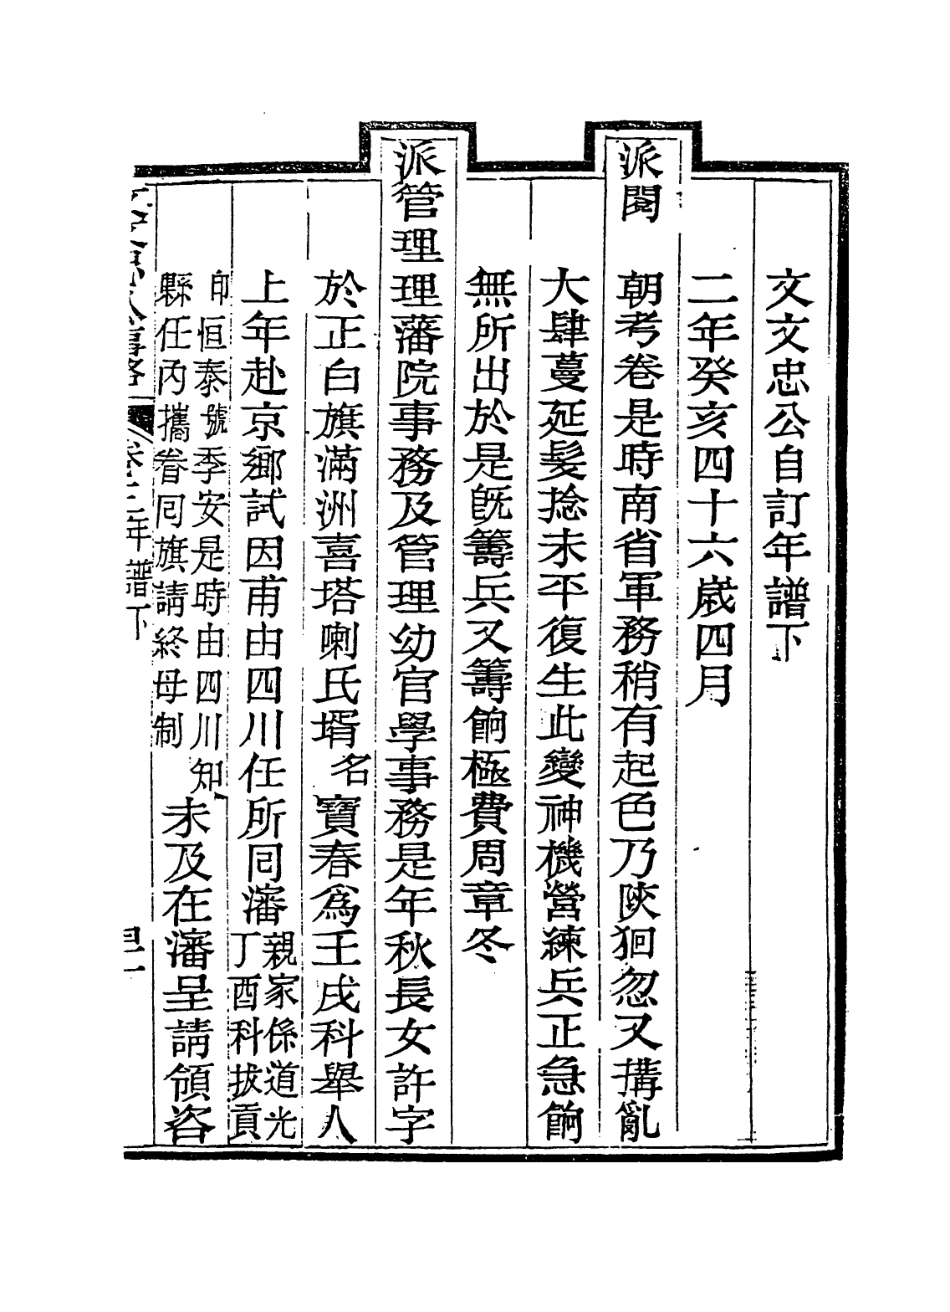 文文忠公自訂年譜下
二年癸亥四十六歲四月
派閱
朝考卷是時南省軍務稍有起色乃陝狪忽又搆亂
大肆蔓延髮捻未平復生此變神機營練兵正急餉
無所出於是旣籌兵又籌餉極費周章冬
派管理理藩院事務及管理幼官學事務是年秋長女許字
於正白旗滿洲喜塔喇氏壻名寶春爲壬戌科舉人
上年赴京鄉試因甫由四川任所同瀋親家係道光
丁酉科拔貢
卽恒泰號季安是時由四川知
縣任內攜眷囘旗請終母制
未及在瀋呈請領咨
年譜下